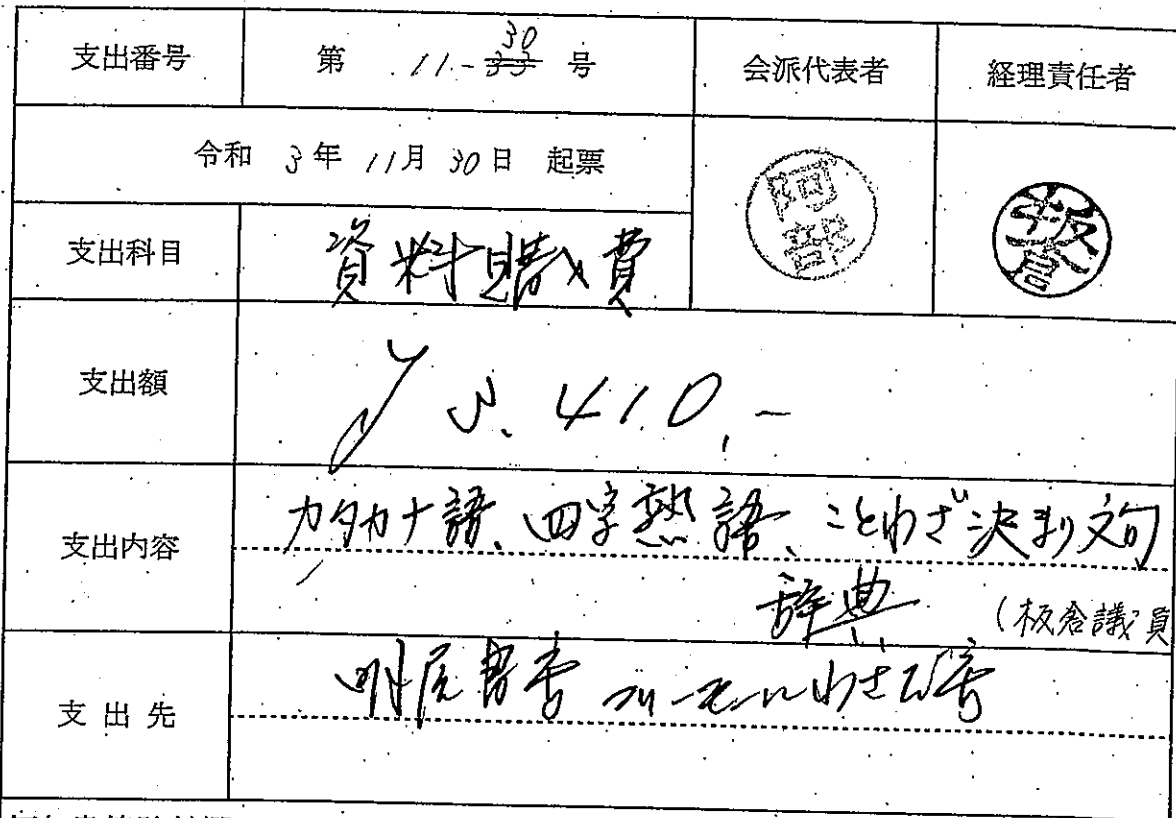 支出番号 第 11-30 号 会派代表者 経理責任者
令和 3年 11月 30日 起票
阿部
板倉
支出科目 資料購入費
支出額 ¥5,410,-
支出内容 カタカナ語、四字熟語、ことわざ決まり文句
辞典 (板倉議員
支出先 明屋書店